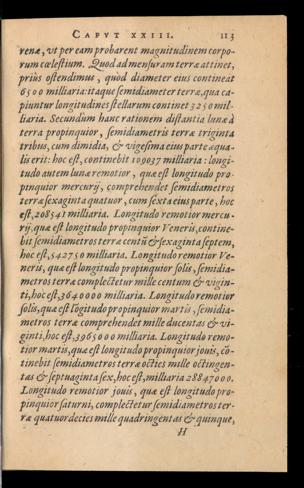 CAPVT XXIII. 113
renæ, vt per eam probarent magnitudinem corpo-
rum cœlestium. Quod ad mensuram terræ attinet,
priùs ostendimus, quòd diameter eius contineat
6500 milliaria: itaque semidiameter terræ, qua ca-
piuntur longitudines stellarum continet 3250 mil-
liaria. Secundum hanc rationem distantia lunæ à
terra propinquior, semidiametris terræ triginta
tribus, cum dimidia, & vigesima eius parte æqua-
lis erit: hoc est, continebit 109037 milliaria: longi-
tudo autem lunæ remotior, quæ est longitudo pro-
pinquior mercurij, comprehendet semidiametros
terræ sexaginta quatuor, cum sexta eius parte, hoc
est, 208541 milliaria. Longitudo remotior mercu-
rij, quæ est longitudo propinquior Veneris, contine-
bit semidiametros terræ centũ & sexaginta septem,
hoc est, 542750 milliaria. Longitudo remotior Ve-
neris, quæ est longitudo propinquior solis, semidia-
metros terræ complectetur mille centum & vigin-
ti, hoc est, 3640000 milliaria. Longitudo remotior
solis, quæ est lõgitudo propinquior martis, semidia-
metros terræ comprehendet mille ducentas & vi-
ginti, hoc est, 3965000 milliaria. Longitudo remo-
tior martis, quæ est longitudo propinquior jouis, cõ-
tinebit semidiametros terræ octies mille octingen-
tas & septuaginta sex, hoc est, milliaria 28847000.
Longitudo remotior jouis, quæ est longitudo pro-
pinquior saturni, complectetur semidiametros ter-
ræ quatuordecies mille quadringentas & quinque,
H